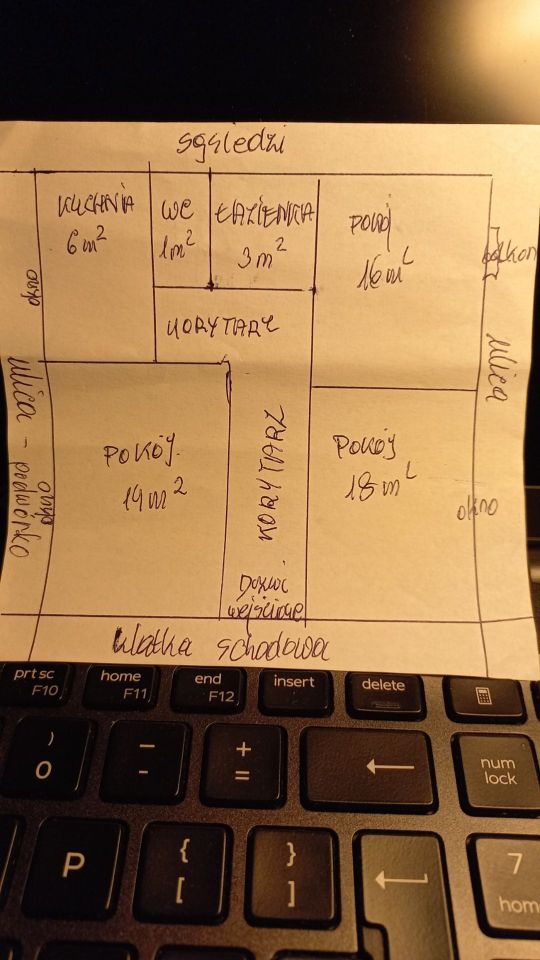 sąsiedzi
KUCHNIA
6 m²
WC
1 m²
ŁAZIENKA
3 m²
POKÓJ
16 m²
balkon
okno
KORYTARZ
ulica
ulica - podwórko
POKÓJ
19 m²
okno
KORYTARZ
POKÓJ
18 m²
okno
Drzwi
wejściowe
klatka schodowa
prt sc
F10
home
F11
end
F12
insert
delete
)
0
_
-
+
=
num
lock
P
{
[
}
]
7
home